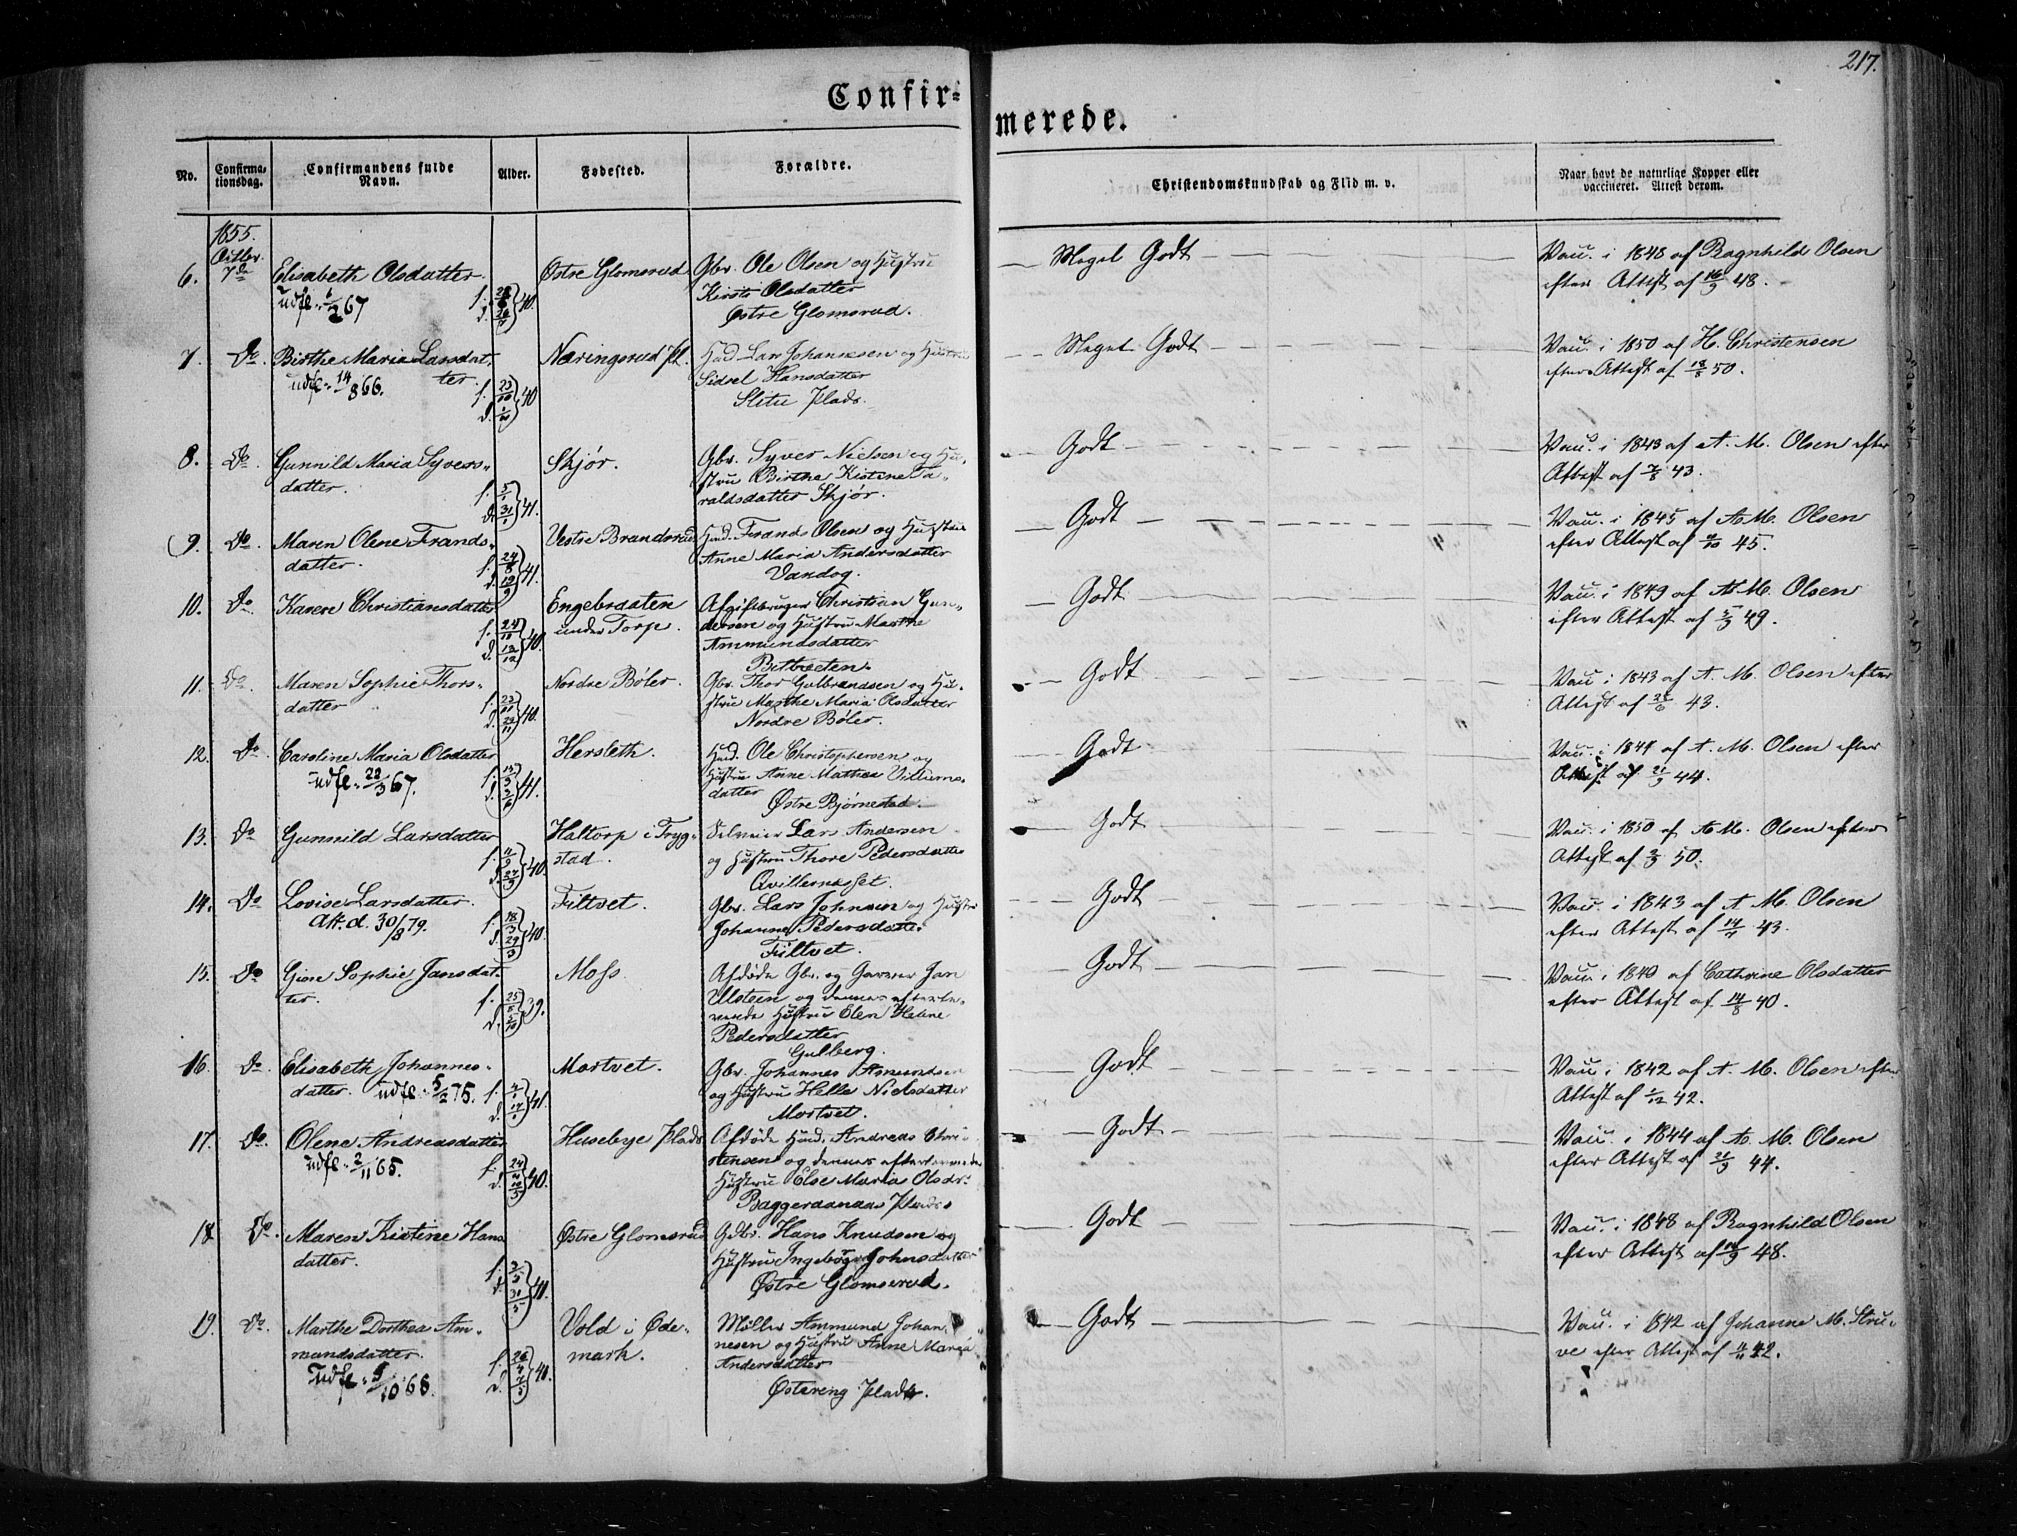 217.
Confir-
merede.
No.
Confirma-
tionsdag.
Confirmandens fulde
Navn.
Alder.
Fødested.
Forældre.
Christendomskundskab og Flid m. v.
Naar havt de naturlige Kopper eller
vaccineret. Attest derom.
1855.
Octbr.
6. 7de Elisabeth Olsdatter. Østre Glomsrud. Gbr. Ole Olsen og Hustru
udfl. 67 f. d. 40.
Kirsti Olsdatter
Østre Glomsrud.
Meget Godt
Vau. i 1848 af Ragnhild Olsen
efter Attest af 16/9 48.
7. Do. Birthe Maria Larsdat-
ter. udfl. 14/8 66. f. d. 40
Næringsrud Pl.
Husd. Lars Johannesen og Hustru
Sidsel Hansdatter
Slitu Plads.
Meget Godt
Vau. i 1850 af H. Christensen
efter Attest af 50.
8. Do. Gunnild Maria Syvers-
datter. f. 5/1 d. 31/1 41.
Skjør.
Gbr. Syver Nielsen og Hu-
stru Birthe Kistine Ta-
raldsdatter Skjør.
Godt
Vau. i 1843 af A. M. Olsen efter
Attest af 43.
9. Do. Maren Olene Frands-
datter. f. 24/8 d. 19/9 41.
Vestre Brandsrud
Husd. Frands Olsen og Hustru
Anne Maria Andersdatter
Vandog.
Godt
Vau. i 1845 af A. M. Olsen
efter Attest af 45.
10. Do. Karen Christiansdatter
f. d. 12/12 40.
Engebraaten
under Torp.
Afgiftsbruger Christian Gun-
dersen og Hustru Marthe
Ammundsdatter
Godt
Vau. i 1849 af A. M. Olsen
efter Attest af 49.
11. Do. Maren Sophie Thors-
datter f. d. 40.
Nordre Bøler.
Gbr. Thor Gulbrandsen og Hu-
stru Marthe Maria Olsdatter
Nordre Bøler.
Godt
Vau. i 1843 af A. M. Olsen efter
Attest af 43.
12. Do. Caroline Maria Olsdatter
udfl. 22/3 67. f. d. 41.
Hersleth.
Husd. Ole Christophersen og
Hustru Anne Mathea Villums-
datter
Østre Bjørnestad.
Godt
Vau. i 1844 af A. M. Olsen efter
Attest af 44.
13. Do. Gunnild Larsdatter
f. d. 40.
Haltorp i Tryg-
stad.
Lars Andersen
og Hustru Thore Pedersdatter
Godt
Vau. i 1850 af A. M. Olsen efter
Attest af 50.
14. Do. Lovise Larsdatter.
Att. d. 30/8 79. f. 18/3 d. 29/3 40.
Filtvet.
Gbr. Lars Johnsen og Hustru
Johanne Pedersdatter
Filtvet.
Godt
Vau. i 1843 af A. M. Olsen
efter Attest af 43.
15. Do. Gion Sophie Jansdat-
ter. f. d. 39.
Moss.
Afdøde Gbr. og Garver Jan
Ulsteen og dennes efterle-
vende Hustru Elen Helene
Pedersdatter
Gulberg.
Godt
Vau. i 1840 af Cathrine Olsdatter
efter Attest af 14/8 40.
16. Do. Elisabeth Johannes-
datter. udfl. 5/2 75. f. d. 41.
Mortvet.
Gbr. Johannes Asmundsen
og Hustru Helle Nielsdatter
Mortvet.
Godt
Vau. i 1842 af A. M. Olsen efter
Attest af 42.
17. Do. Olene Andreasdatter
udfl. 2/11 65. f. d. 40.
Husebye Plads
Afdøde Husd. Andreas Chri-
stensen og dennes efterlevende
Hustru Else Maria Olsdr.
Plads.
Godt
Vau. i 1844 af A. M. Olsen
efter Attest af 44.
18. Do. Maren Kistine Hans
datter. f. d. 31/5 40.
Østre Glomsrud
Gdbr. Hans Knudsen og
Hustru Ingeborg Johnsdatter
Østre Glomsrud.
Godt
Vau. i 1848 af Ragnhild Olsen
efter Attest af 16/9 48.
19. Do. Marthe Dorthea Am-
mundsdatter.
Udfl. 10 68. f. 26/4 d. 40.
Vold i Øde-
mark.
Møller Ammund Johan-
nesen og Hustru Anne Maria
Andersdatter
Østereng Plads.
Godt
Vau. i 1842 af Johanne M. Stru-
ve efter Attest af 42.